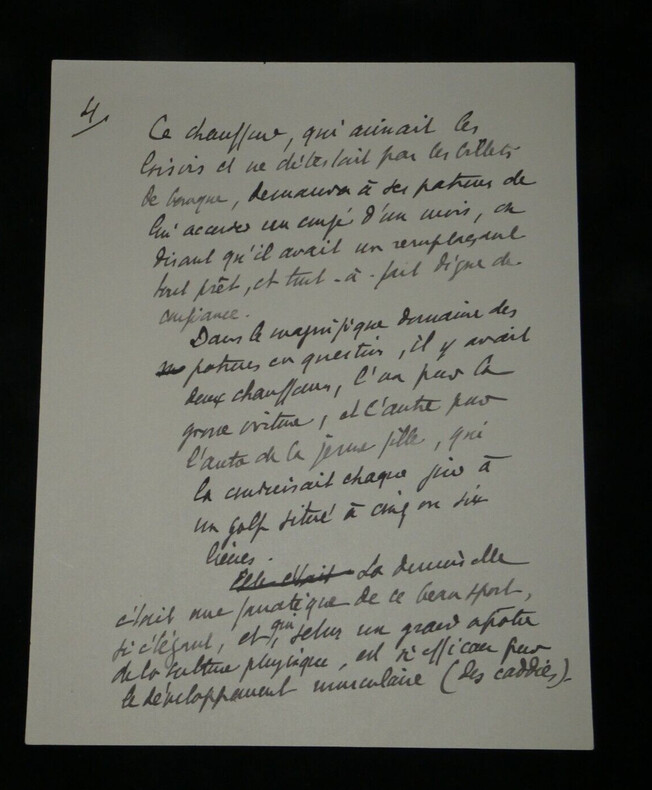 4.
Ce chauffeur, qui aimait les
loisirs et ne détestait pas les billets
de banque, demanda à ses patrons de
lui accorder un congé d'un mois, en
disant qu'il avait un remplaçant
tout prêt, et tout-à-fait digne de
confiance.
Dans le magnifique domaine des
patrons en question, il y avait
deux chauffeurs, l'un pour la
grosse voiture, et l'autre pour
l'auto de la jeune fille, qui
la conduisait chaque jour à
un golf situé à cinq ou six
lieues.
Elle était La demoiselle
était une fanatique de ce beau sport,
si élégant, et qui, selon un grand apôtre
de la culture physique, est si efficace pour
le développement musculaire (des caddies).